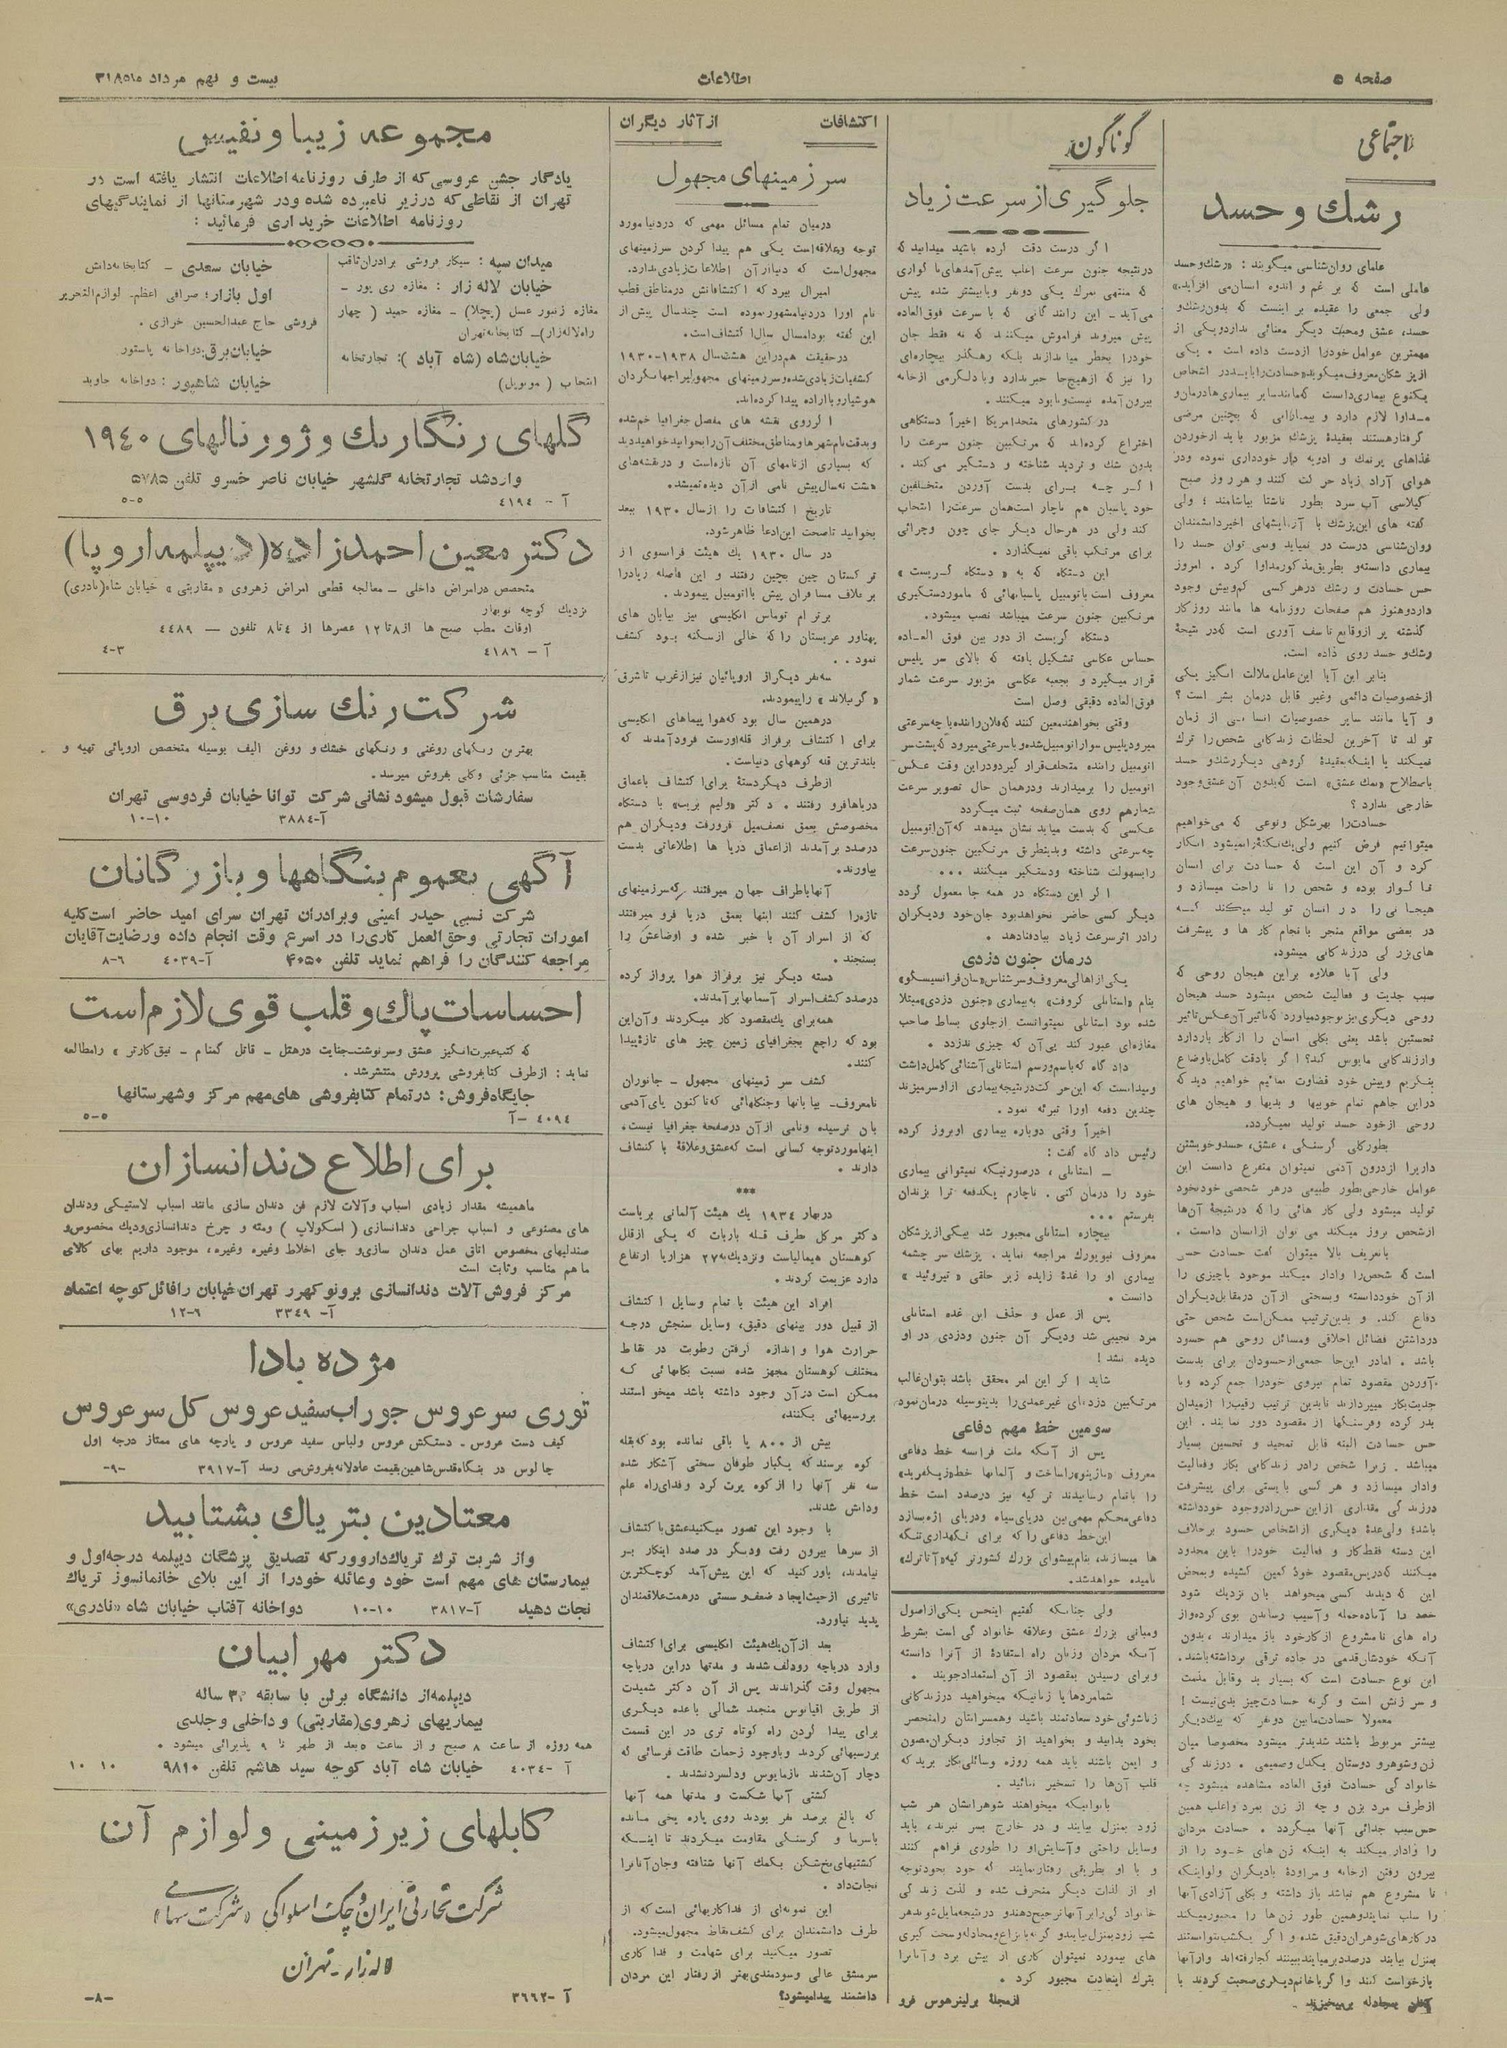 صفحه ۵
اطلاعات
بیست و نهم مرداد
اجتماعی
رشك و حسد
علمای روان‌شناسی میگویند : «رشك و حسد
عاملی است که بر غم و اندوه انسان می افزاید.»
ولی جمعی را عقیده بر اینست که بدون رشك و
حسد، عشق ومحبت دیگر معنائی ندارد ویکی از
مهمترین عوامل خودرا ازدست داده است . یکی
از پزشکان معروف میگوید «حسادت را باید در اشخاص
یکنوع بیماری دانست که مانند سایر بیماری ها درمان و
مداوا لازم دارد و بیمارانی که بچنین مرضی
گرفتار هستند بعقیدهٔ پزشك مزبور باید از خوردن
غذاهای پرنمك و ادویه دار خودداری نموده ودر
هوای آزاد زیاد حرکت کنند و هر روز صبح
گیلاسی آب سرد بطور ناشتا بیاشامند ؛ ولی
گفته های این پزشك با آزمایشهای اخیر دانشمندان
روان‌شناسی درست در نمیاید ونمی توان حسد را
بیماری دانسته و بطریق مذکور مداوا کرد . امروز
حس حسادت و رشك در هر کسی کم و بیش وجود
دارد وهنوز هم صفحات روزنامه ها مانند روزگار
گذشته پر از وقایع تاسف آوری است که در نتیجهٔ
رشك و حسد روی داده است.
بنابر این آیا این عامل ملالت انگیز یکی
از خصوصیات دائمی وغیر قابل درمان بشر است ؟
و آیا مانند سایر خصوصیات انسانی از زمان
تولد تا آخرین لحظات زندگانی شخص را ترك
نمیکند یا اینکه بعقیدهٔ گروهی دیگر رشك و حسد
باصطلاح «نمك عشق» است که بدون آن عشق وجود
خارجی ندارد ؟
حسادت را بهر شکل و نوعی که می‌خواهیم
میتوانیم فرض کنیم ولی یك نکته را نمیشود انکار
کرد و آن این است که حسادت برای انسان
ناگوار بوده و شخص را ناراحت میسازد و
هیجانی را در انسان تولید میکند که
در بعضی مواقع منجر بانجام کار ها و پیشرفت
های بزرگی در زندگانی میشود.
ولی آیا علاوه بر این هیجان روحی که
سبب جدیت و فعالیت شخص میشود حسد هیجان
روحی دیگری نیز بوجود میآورد که تاثیر آن عکس تاثیر
نخستین باشد یعنی بکلی انسان را از کار بازدارد
واز زندگانی مایوس کند؟ اگر بادقت کامل باوضاع
بنگریم وپیش خود قضاوت نمائیم خواهیم دید که
دراین جاهم تمام خوبیها و بدیها و هیجان های
روحی از خود حسد تولید نمیگردد.
بطورکلی گرسنگی ، عشق، حسد و خویشتن
داری را از درون آدمی نمیتوان متفرع دانست این
عوامل خارجی بطور طبیعی در هر شخصی خود بخود
تولید میشود ولی کار هائی را که در نتیجهٔ آن‌ها
از شخص بروز میکند می توان از انسان دانست .
باتعریف بالا میتوان گفت حسادت حسی
است که شخص را وادار میکند موجود یا چیزی را
از آن خود دانسته و بسختی از آن در مقابل دیگران
دفاع کند. و بدین ترتیب ممکن است شخص حتی
در داشتن فضائل اخلاقی ومسائل روحی هم حسود
باشد . امادر این‌جا جمعی از حسودان برای بدست
آوردن مقصود تمام نیروی خودرا جمع کرده و با
جدیت بکار میپردازند تا بدین ترتیب رقیب را از میدان
بدر کرده وفرسنگها از مقصود دور نمایند. این
حس حسادت البته قابل تمجید و تحسین بسیار
میباشد . زیرا شخص را در زندگانی بکار و فعالیت
وادار میسازد و هر کسی بایستی برای پیشرفت
درزندگی مقداری از این حس را در وجود خود داشته
باشد؛ ولی عدهٔ دیگری از اشخاص حسود برخلاف
این دسته فقط کار و فعالیت خودرا باین محدود
میکنند که در پس مقصود خود کمین کشیده و بمحض
این که دیدند کسی میخواهد بان نزدیك شود
خود را آماده حمله و آسیب رساندن بوی کرده و از
راه های نامشروع از کار خود باز میدارند ، بدون
آنکه خودشان قدمی در جاده ترقی برداشته باشند.
این نوع حسادت است که بسیار بد وقابل مذمت
و سرزنش است و گرنه حسادت چیز بدی نیست !
معمولا حسادت مابین دو نفر که بیك دیگر
بیشتر مربوط باشند شدیدتر میشود مخصوصا میان
زن و شوهر و دوستان یکدل وصمیمی . درزندگی
خانوادگی حسادت فوق العاده مشاهده میشود چه
ازطرف مرد بزن و چه از زن بمرد واغلب همین
حس سبب جدائی آنها میگردد . حسادت مردان
را وادار میکند به اینکه زن های خود را از
بیرون رفتن از خانه و مراودهٔ بادیگران ولو اینکه
نا مشروع هم نباشد باز داشته و بکلی آزادی آنها
را سلب نمایند وهمین طور زن ها را مجبور میکند
در کارهای شوهران دقیق شده و اگر یکشب نتوانستند
بمنزل بیایند درصدد برمیایند ببینند کجا رفته‌اند واز آنها
بازخواست کنند واگر باخانم دیگری صحبت کردند با
آنان بمجادله برمیخیزند .
گوناگون
جلوگیری از سرعت زیاد
اگر درست دقت کرده باشید میدانید که
درنتیجه جنون سرعت اغلب پیش آمدهای ناگواری
که منتهی بمرك یکی دونفر ویا بیشتر شده پیش
می‌آید - این رانندگانی که با سرعت فوق العاده
پیش میروند فراموش میکنند که نه فقط جان
خودرا بخطر میاندازند بلکه رهگذر بیچاره‌ای
را نیز که از هیچ جا خبر ندارد و با دلگرمی از خانه
بیرون آمده نیست و نابود میکنند .
در کشورهای متحد امریکا اخیراً دستگاهی
اختراع کرده‌اند که مرتکبین جنون سرعت را
بدون شك و تردید شناخته و دستگیر می کند .
اگر چه برای بدست آوردن متخلفین
خود پاسبان هم ناچار است همان سرعت را انتخاب
کند ولی در هرحال دیگر جای چون وچرائی
برای مرتکب باقی نمیگذارد .
این دستگاه که به « دستگاه گریست »
معروف است باتومبیل پاسبانهائی که مامور دستگیری
مرتکبین جنون سرعت میباشد نصب میشود.
دستگاه گریست از دور بین فوق العاده
حساس عکاسی تشکیل یافته که بالای سر پلیس
قرار میگیرد و بجعبه عکاسی مزبور سرعت شمار
فوق العاده دقیقی وصل است
وقتی بخواهند معین کنند که فلان راننده باچه سرعتی
میرود پلیس سوار اتومبیل شده و باسرعتی میرود که پشت سر
اتومبیل راننده متخلف قرار گیرد در این وقت عکس
اتومبیل را برمیدارند و درهمان حال تصویر سرعت
شمار هم روی همان صفحه ثبت میگردد
عکسی که بدست میاید نشان میدهد که آن اتومبیل
چه سرعتی داشته و بدینطریق مرتکبین جنون سرعت
را بسهولت شناخته ودستگیر میکنند . . .
اگر این دستگاه در همه جا معمول گردد
دیگر کسی حاضر نخواهد بود جان خود ودیگران
را در اثر سرعت زیاد بباد فنا دهد .
درمان جنون دزدی
یکی از اهالی معروف و سرشناس «سان فرانسیسکو»
بنام «استانلی کروفت» به بیماری «جنون دزدی» مبتلا
شده بود استانلی نمیتوانست از جلوی بساط صاحب
مغازه‌ای عبور کند بی آن که چیزی ندزدد .
دادگاه که باسم ورسم استانلی آشنائی کامل داشت
ومیدانست که این حرکت در نتیجه بیماری از او سرمیزند
چندین دفعه اورا تبرئه نمود.
اخیراً وقتی دوباره بیماری او بروز کرده
رئیس دادگاه گفت :
ـ استانلی ، در صورتیکه نمیتوانی بیماری
خود را درمان کنی . ناچارم یکدفعه ترا بزندان
بفرستم . . .
بیچاره استانلی مجبور شد بیکی از پزشکان
معروف نیویورك مراجعه نماید . پزشك سر چشمه
بیماری او را غدهٔ زایده زیر حلقی «تیروئید»
دانست .
پس از عمل و حذف این غده استانلی
مرد نجیبی شد ودیگر آن جنون ودزدی در او
دیده نشد !
شاید اگر این امر محقق باشد بتوان غالب
مرتکبین دزدیهای غیرعمدی را بدینوسیله درمان نمود
سومین خط مهم دفاعی
پس از آنکه ملت فرانسه خط دفاعی
معروف «ماژینو» را ساخت و آلمانها خط «زیگفرید»
را باتمام رسانیدند ترکیه نیز درصدد است خط
دفاعی محکم مهمی بین دریای سیاه ودریای اژه بسازد
این خط دفاعی را که برای نگهداری تنگه
ها میسازند، بنام پیشوای بزرك کشور ترکیه «آتاترك»
نامیده خواهد شد.
ولی چنانکه گفتیم اینحس یکی از اصول
ومبانی بزرك عشق وعلاقه خانوادگی است بشرط
آنکه مردان وزنان راه استفادهٔ از آنرا دانسته
وبرای رسیدن بمقصود از آن استمداد جویند .
شمامردها یا زنانیکه میخواهید درزندگانی
زناشوئی خود سعادتمند باشید وهمسرانتان را منحصر
بخود بدانید و بخواهید از تجاوز دیگران مصون
و ایمن باشند باید همه روزه وسائلی بکار برید که
قلب آن‌ها را تسخیر نمائید .
بانوانیکه میخواهند شوهرانشان هر شب
زود بمنزل بیایند و در خارج بسر نبرند، باید
وسایل راحتی وآسایش او را طوری فراهم کنند
و با او بطریقی رفتار نمایند که خود بخود توجه
او از لذات دیگر منحرف شده و لذت زندگی
خانوادگی را بر آنها ترجیح دهند و در نتیجه مایل شوند هر
شب زود بمنزل بیایند و گرنه با نزاع و مجادله و سخت گیری
های بیمورد نمیتوان کاری از پیش برد و آنانرا
بترك اینعادت مجبور کرد .
از مجلهٔ برلینرهوس فرو
اکتشافات
از آثار دیگران
سرزمینهای مجهول
درمیان تمام مسائل مهمی که دردنیا مورد
توجه وعلاقه است یکی هم پیدا کردن سرزمینهای
مجهول است که دنیا از آن اطلاعات زیادی ندارد.
امیرال بیرد که اکتشافاتش درمناطق قطب
نام اورا در دنیا مشهور نموده است چندسال پیش از
این گفته بود امسال سال اکتشاف است .
درحقیقت هم در این هشت سال ۱۹۳۸-۱۹۳۰
کشفیات زیادی شده و سرزمینهای مجهول را جهانگردان
هوشیار و با اراده پیدا کرده‌اند.
اگر روی نقشه های مفصل جغرافیا خم شده
وبدقت نام شهرها ومناطق مختلف آن را بخوانید خواهید دید
که بسیاری از نامهای آن تازه است و در نقشه‌های
هشت نه سال پیش نامی از آن دیده نمیشد.
تاریخ اکتشافات را از سال ۱۹۳۰ ببعد
بخوانید تا صحت این ادعا ظاهر شود.
در سال ۱۹۳۰ یك هیئت فرانسوی از
ترکستان چین بچین رفتند و این فاصله زیاد را
برخلاف مسافران پیش با اتومبیل پیمودند.
برترام توماس انگلیسی نیز بیابان های
پهناور عربستان را که خالی از سکنه بود کشف
نمود . .
سه نفر دیگر از اروپائیان نیز از غرب تا شرق
« گروئنلاند » را پیمودند.
درهمین سال بود که هوا پیماهای انگلیسی
برای اکتشاف بر فراز قله اورست فرود آمدند که
بلندترین قله کوههای دنیاست .
ازطرف دیگر دستهٔ برای اکتشاف باعماق
دریاها فرو رفتند . دکتر «ولیم بیب» با دستگاه
مخصوصش بعمق نصف میل فرورفت ودیگران هم
درصدد برآمدند از اعماق دریا ها اطلاعاتی بدست
بیاورند.
آنها باطراف جهان میرفتند که سرزمینهای
تازه را کشف کنند اینها بعمق دریا فرو میرفتند
که از اسرار آن با خبر شده و اوضاعش را
بسنجند .
دسته دیگر نیز برفراز هوا پرواز کرده
درصدد کشف اسرار آسمانها بر آمدند.
همه برای یك مقصود کار میکردند و آن این
بود که راجع بجغرافیای زمین چیز های تازه پیدا
کنند.
کشف سر زمینهای مجهول - جانوران
نامعروف- بیابانها وجنگلهائی که تاکنون پای آدمی
بان نرسیده ونامی از آن در صفحه جغرافیا نیست .
اینها مورد توجه کسانی است که عشق و علاقهٔ باکتشاف
دارند .
***
دربهار ۱۹۳٤ یك هیئت آلمانی بریاست
دکتر مرکل طرف قله باربات که یکی از قلل
کوهستان هیمالیاست ونزدیك به ۲۷ هزار پا ارتفاع
دارد عزیمت کردند .
افراد این هیئت با تمام وسایل اکتشاف
از قبیل دور بینهای دقیق، وسایل سنجش درجه
حرارت هوا و اندازه گرفتن رطوبت در نقاط
مختلف کوهستان مجهز شده نسبت بکانهائی که
ممکن است در آن وجود داشته باشد میخواستند
بررسیهائی بکنند.
بیش از ۸۰۰ پا باقی نمانده بود که بقله
کوه برسند که یکبار طوفان سختی آشکار شده
سه نفر آنها را از کوه پرت کرد وفدای راه علم
ودانش شدند.
با وجود این تصور میکنید عشق باکتشاف
از سرها بیرون رفت ودیگر در صدد اینکار بر
نیامدند، باور کنید که این پیش آمد کوچکترین
تاثیری از حیث ایجاد ضعف و سستی در همت علاقمندان
پدید نیاورد.
بعد از آن یك هیئت انگلیسی برای اکتشاف
وارد دریاچه رودلف شدند و مدتها در این دریاچه
مجهول وقت گذراندند پس از آن دکتر شمیدت
از طریق اقیانوس منجمد شمالی باعده دیگری
برای پیدا کردن راه کوتاه تری در این قسمت
بررسیهائی کردند و باوجود زحمات طاقت فرسائی که
دچار آن شدند باز مایوس و دلسرد نشدند .
کشتی آنها شکست و مدتها همه آنها
که بالغ برصد نفر بودند روی پاره یخی مانده
باسرما و گرسنگی مقاومت میکردند تا اینکه
کشتیهای یخ شکن بکمك آنها شتافته وجان آنانرا
نجات داد .
این نمونه‌ای از فداکاریهائی است که از
طرف دانشمندان برای کشف نقاط مجهول میشود.
تصور میکنید برای شهامت و فداکاری
سرمشق عالی وسودمندی بهتر از رفتار این مردان
دانشمند پیدا میشود؟
مجموعه زیبا و نفیس
یادگار جشن عروسی که از طرف روزنامه اطلاعات انتشار یافته است در
تهران از نقاطی که درزیر نامبرده شده ودر شهرستانها از نمایندگیهای
روزنامه اطلاعات خریداری فرمائید :
میدان سپه : سیگار فروشی برادران ثاقب
خیابان لاله زار : مغازه ری پور -
مغازه زنبور عسل (پچلا) - مغازه حمید ( چهار
راه لاله‌زار)- کتابخانه تهران
خیابان شاه (شاه آباد ): تجارتخانه
انتخاب ( موبوبل)
خیابان سعدی - کتابخانه دانش
اول بازار؛ صرافی اعظم- لوازم التحریر
فروشی حاج عبدالحسین خرازی .
خیابان برق: دواخانه پاستور
خیابان شاهپور : دواخانه جاوید
گلهای رنگارنك و ژورنالهای ۱۹٤۰
واردشد تجارتخانه گلشهر خیابان ناصر خسرو تلفن ۵۷۸۵
آ - ٤۱۹٤ ۵-۵
دکتر معین احمدزاده (دیپلمه اروپا)
متخصص درامراض داخلی - معالجه قطعی امراض زهروی « مقاربتی » خیابان شاه (نادری)
نزدیك کوچه نوبهار
اوقات مطب صبح ها از ۸ تا ۱۲ عصرها از ٤ تا ۸ تلفون - ٤٤۸۹
آ - ٤۱۸۶ ۳-٤
شرکت رنك سازی برق
بهترین رنگهای روغنی و رنگهای خشك و روغن الیف بوسیله متخصص اروپائی تهیه و
بقیمت مناسب جزئی وکلی بفروش میرسد.
سفارشات قبول میشود نشانی شرکت توانا خیابان فردوسی تهران
آ-۳۸۸٤ ۱۰-۱۰
آگهی بعموم بنگاهها و بازرگانان
شرکت نسبی حیدر امینی وبرادران تهران سرای امید حاضر است کلیه
امورات تجارتی وحق‌العمل کاری را در اسرع وقت انجام داده ورضایت آقایان
مراجعه کنندگان را فراهم نماید تلفن ۴۰۵۰ آ-٤۰۳۹ ۶-۸
احساسات پاك و قلب قوی لازم است
که کتب عبرت انگیز عشق وسرنوشت-جنایت درهتل - قاتل گمنام - نیق کارتر » را مطالعه
نماید : ازطرف کتابفروشی پرورش منتشر شد.
جایگاه فروش : در تمام کتابفروشی های مهم مرکز وشهرستانها
٤۰۹٤ -آ ۵-۵
برای اطلاع دندانسازان
ماهمیشه مقدار زیادی اسباب وآلات لازم فن دندان سازی مانند اسباب لاستیکی ودندان
های مصنوعی و اسباب جراحی دندانسازی ( اسکولاپ ) ومته و چرخ دندانسازی ودیك مخصوص و
صندلیهای مخصوص اتاق عمل دندان سازی و جای اخلاط وغیره وغیره، موجود داریم بهای کالای
ما هم مناسب وثابت است
مرکز فروش آلات دندانسازی برونو کهرر تهران خیابان رافائل کوچه اعتماد
آ- ۳۳٤۹ ۶-۱۲
مژده بادا
توری سر عروس جوراب سفید عروس گل سر عروس
کیف دست عروس . دستکش عروس ولباس سفید عروس و پارچه های ممتاز درجه اول
چالوس در بنگاه قدس شاهین بقیمت عادلانه بفروش می رسد آ-۳۹۱۷ -۹-
معتادین بتریاك بشتابید
واز شربت ترك تریاك داروور که تصدیق پزشگان دیپلمه درجه اول و
بیمارستان های مهم است خود وعائله خودرا از این بلای خانمانسوز تریاك
نجات دهید آ-۳۸۱۷ ۱۰-۱۰ دواخانه آفتاب خیابان شاه «نادری»
دکتر مهرابیان
دیپلمه از دانشگاه برلن با سابقه ۳۰ ساله
بیماریهای زهروی (مقاربتی) و داخلی و جلدی
همه روزه از ساعت ۸ صبح و از ساعت ۵ بعد از ظهر تا ۹ پذیرائی میشود .
آ -٤۰۳٤ خیابان شاه آباد کوچه سید هاشم تلفن ۹۸۱۰ ۱۰ ۱۰
کابلهای زیرزمینی و لوازم آن
شرکت تجارتی ایران و چك اسلواکی «شرکت سهامی»
لاله‌زار - تهران
آ -۳۶۶۲ -۸-